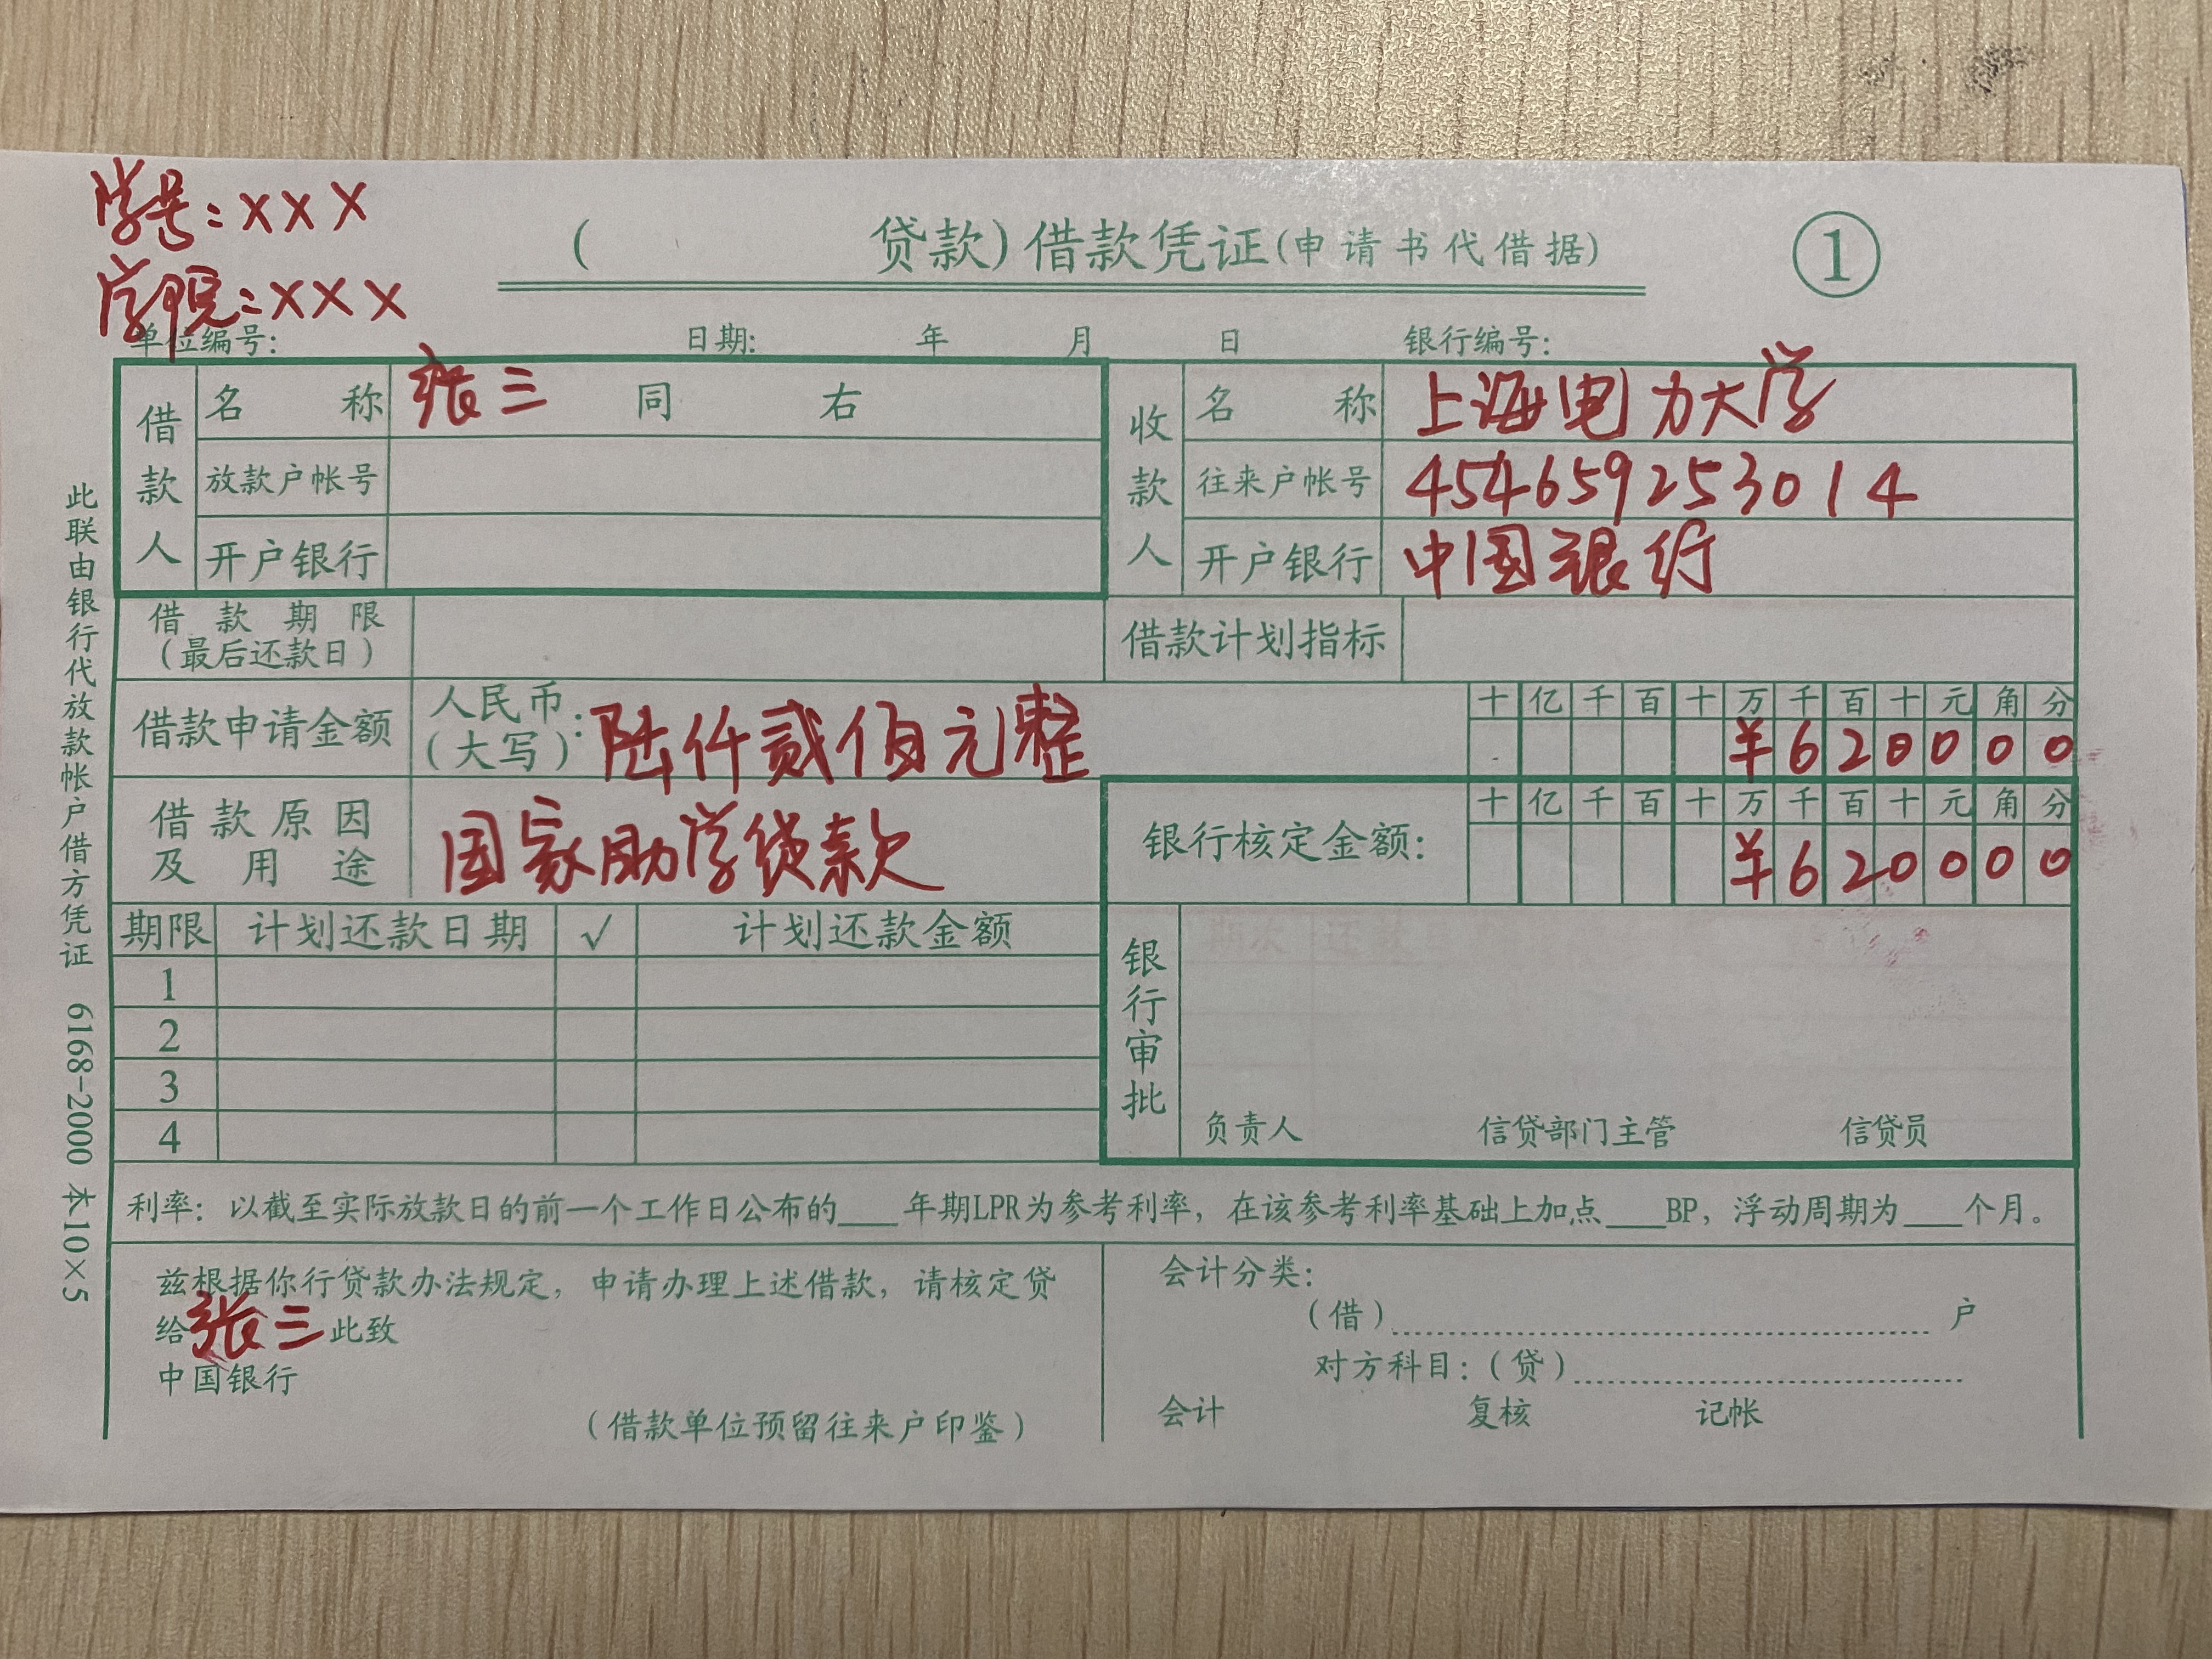 学号:XXX
学院:XXX
( 贷款)借款凭证(申请书代借据) ①
单位编号: 日期: 年 月 日 银行编号:
借款人 名称 张三 同右 收款人 名称 上海电力大学
放款户帐号 往来户帐号 454659253014
开户银行 开户银行 中国银行
借款期限(最后还款日) 借款计划指标
借款申请金额 人民币(大写): 陆仟贰佰元整 十亿千百十万千百十元角分
¥620000
借款原因及用途 国家助学贷款 银行核定金额: 十亿千百十万千百十元角分
¥620000
期限 计划还款日期 √ 计划还款金额 银行审批
1
2
3
4
负责人 信贷部门主管 信贷员
利率: 以截至实际放款日的前一个工作日公布的___年期LPR为参考利率, 在该参考利率基础上加点___BP, 浮动周期为___个月。
兹根据你行贷款办法规定, 申请办理上述借款, 请核定贷
给张三此致
中国银行
(借款单位预留往来户印鉴)
会计分类:
(借) 户
对方科目:(贷)
会计 复核 记帐
此联由银行代放款帐户借方凭证 6168-2000 本10×5